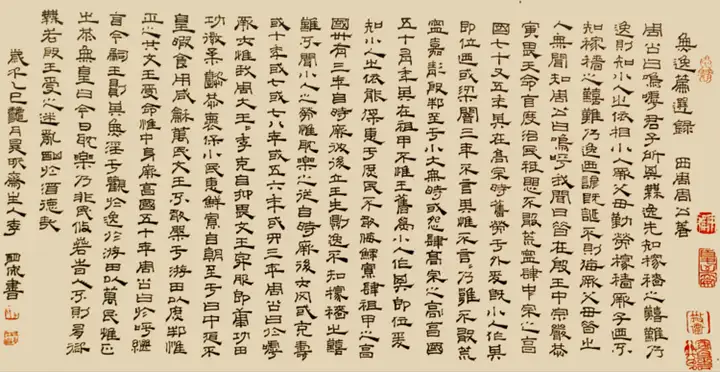 無逸篇選録 西周周公著
周公曰嗚嘑君子所其無逸先知稼穡之囏難乃
逸則知小人之依相小人厥父母勤勞稼穡厥子迺不
知稼穡之囏難乃逸迺諺既誕不則侮厥父母曰昔之
人無聞知周公曰嗚呼我聞曰昔在殷王中宗嚴恭
寅畏天命自度治民祗懼不敢荒寧肆中宗之享
國七十又五年其在高宗時舊勞于外爰既小人作其
即位迺或梁闇三年不言其惟不言言乃雍不敢荒
寧嘉靖殷邦至于小大無時或怨肆高宗之享國
五十有九年其在祖甲不惟王舊為小人作其即位爰
知小人之依能保惠于庶民不敢侮鰥寡肆祖甲之享
國卅有三年自時厥後立王生則逸不知稼穡之囏
難不聞小人之勞惟耽樂之從自時厥後亦罔或克壽
或十年或七八年或五六年或四三年周公曰於嘑
厥亦惟我周大王王季克自抑畏文王卑服即康功田
功徽柔懿恭懷保小民惠鮮鰥寡自朝至于日中昃不
皇暇食用咸龢萬民文王不敢槃于游田以庶邦惟
正之共文王受命惟中身厥享國五十年周公曰於呼繼
自今嗣王則其無淫于觀于逸于游田以萬民惟正
之共無皇曰今日耽樂乃非民攸若昔人丕則有愆
無若殷王受之迷亂酗于酒德哉
歲在乙巳月齋主人李書